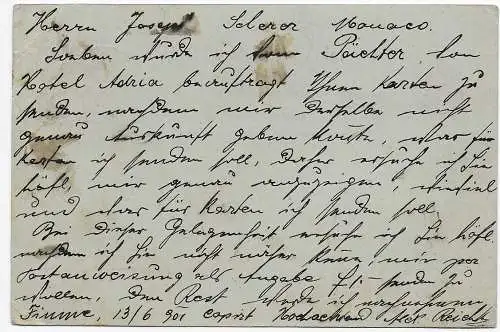 Herrn Josef Scherer Monaco.
Soeben wurde ich vom Pächter von
Hotel Adria beauftragt Ihnen Karten zu
senden, nachdem mir derselbe nicht
genau Auskunft geben konte, was für
Karten ich senden soll, daher ersuche ich Sie
höfl. mir genau anzuzeigen, wieviel
und was für Karten ich senden soll
Bei dieser Gelegenheit ersuche ich Sie höfl.
nachdem ich Sie nicht näher kenne mir per
Postanweisung als Angabe f1.- senden zu
wollen, den Rest werde ich nachnehmen
Fiume, 13/6 901 Hochachtend